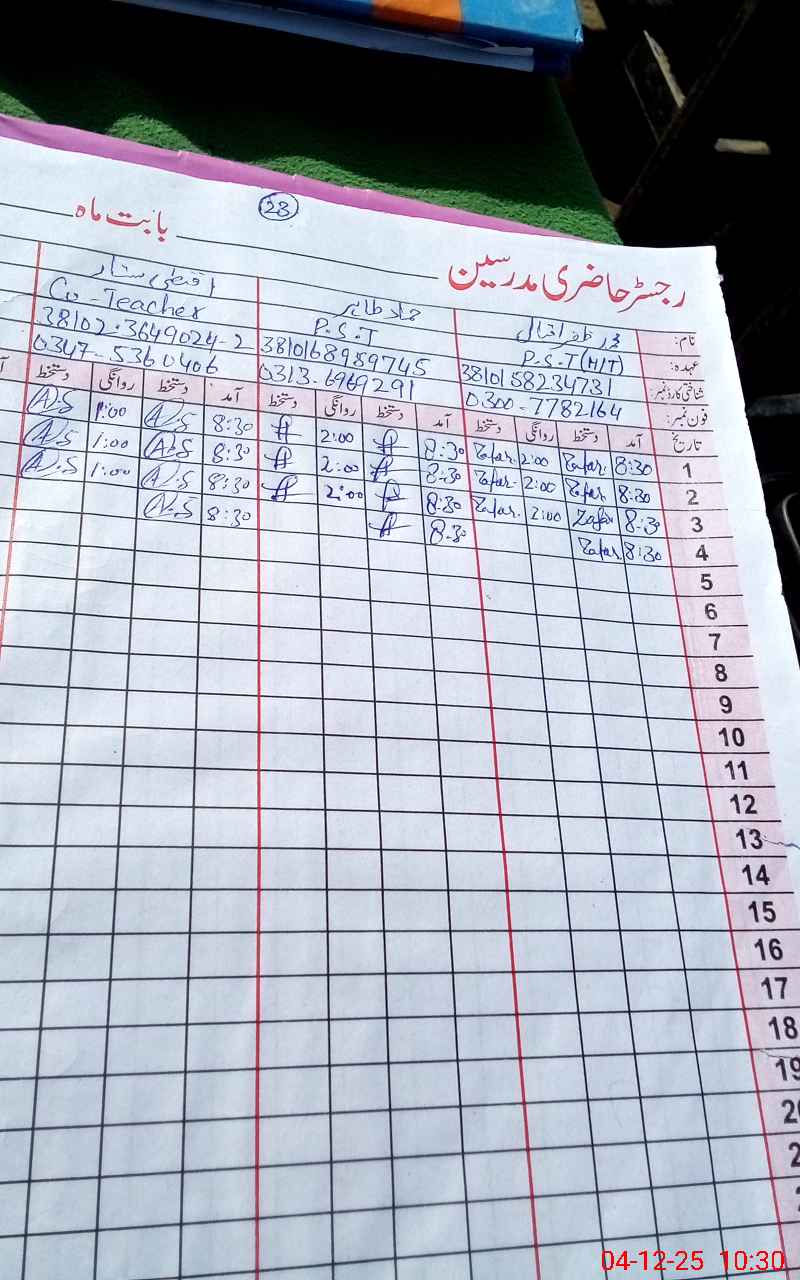 28
رجسٹر حاضری مدرسین
بابت ماہ
نام: محمد ظفر اقبال حماد طاہر اقصیٰ ستار
عہدہ: P.S.T (H/T) P.S.T Co-Teacher
شناختی کارڈ نمبر: 3810158234731 3810168989745 38102-3649024-2
فون نمبر: 0300-7782164 0313-6969291 0347-5360406
تاریخ آمد دستخط روانگی دستخط آمد دستخط روانگی دستخط آمد دستخط روانگی دستخط
1 8:30 Zafar 2:00 Zafar 8:30 2:00 8:30 A.S 1:00 A.S
2 8:30 Zafar 2:00 Zafar 8:30 2:00 8:30 A.S 1:00 A.S
3 8:30 Zafar 2:00 Zafar 8:30 2:00 8:30 A.S 1:00 A.S
4 8:30 Zafar 8:30 8:30 A.S
5
6
7
8
9
10
11
12
13
14
15
16
17
18
19
04-12-25 10:30